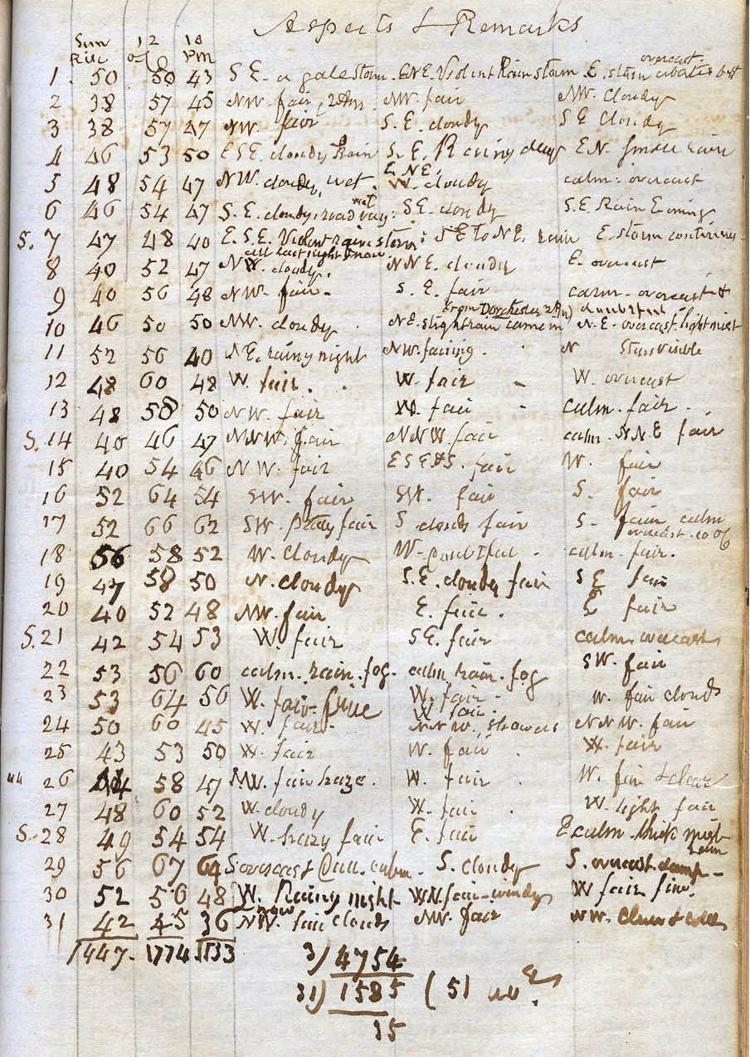 Aspects & Remarks
Sun Rise 12 o'C 10 PM
overcast
1. 50 50 43 S E. a gale storm. ENE. Violent Rain storm E. storm abates but
2 38 57 45 NW. fair, NW. fair NW. Cloudy
3 38 57 47 NW. fair S. E. cloudy S E Cloudy
4 46 53 50 E S E. cloudy Rain S. E. Rainy day E N. small rain
E NE.
5 48 54 47 NW. cloudy, wet. W. cloudy calm. overcast
wet
6 46 54 47 S. E. cloudy, road very. S E. cloudy S. E. Rain Evening
S. 7 47 48 40 E. S. E. Violent rain storm: S E to N E. rain E. storm continues
all last night & now.
8 40 52 47 NW. cloudy. NNE. cloudy E. overcast
9 40 56 48 NW. fair. S. E. fair calm. overcast &
from Dorchester doubtful
10 46 50 50 NW. cloudy N.E. slight rain came in N. E. overcast light mist
11 52 56 40 N E. rainy night NW. fairing. N Stars visible
12 48 60 48 W. fair. W. fair - W. overcast
13 48 58 50 NW. fair W. fair calm. fair.
S. 14 40 46 47 NNW. fair NNW. fair calm. N N E fair
15 40 54 46 NW. fair E S E & S. fair W. fair
16 52 64 54 SW. fair SW. fair S. fair
17 52 66 62 SW. fair S clouds fair S. fair calm
overcast
18 56 58 52 W. cloudy W. calm. fair.
19 47 58 50 N. cloudy S. E. cloudy fair S E fair
20 40 52 48 NW. fair. E. fair. E fair
S. 21 42 54 53 W. fair S E. fair calm. overcast
22 53 56 60 calm. rain. fog. calm, rain. fog SW. fair
23 53 64 56 W. fair. fine W. fair. W. fair clouds
W fair.
24 50 60 45 W. fair. NNW. showers NNW. fair
25 43 53 50 W. fair W. fair W. fair
26 44 58 47 NW. fair haze. W. fair W. fair & clear
27 48 60 52 W. cloudy W. fair W. light fair
S. 28 49 54 54 W. hazy fair E. fair E calm. thick mist
29 56 67 64 S overcast calm. S. cloudy S. overcast damp.
30 52 56 48 W. Rainy night WN fair. windy W fair fine.
now
31 42 45 36 NW. fair clouds NW. fair NW. clear & cold
1447. 1774 1533 3) 4754
31) 1585 (51
35